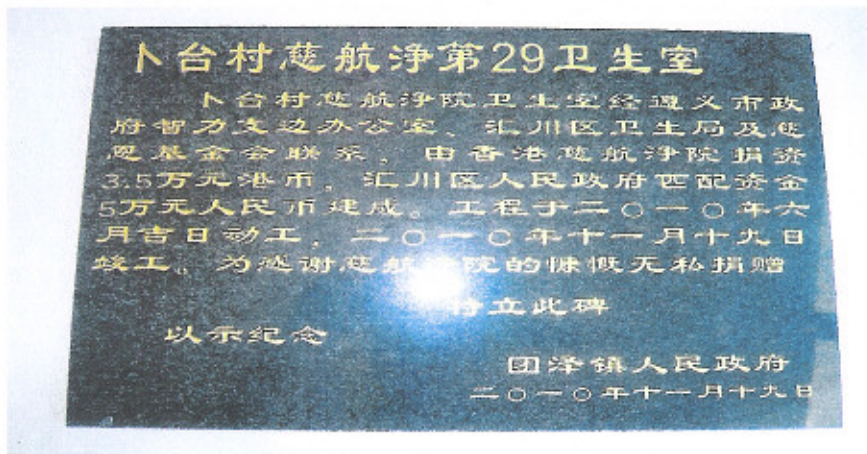 卜台村慈航浄第29卫生室
卜台村慈航浄院卫生室经遵义市政
府智力支边办公室、汇川区卫生局及慈
恩基金会联系，由香港慈航浄院捐资
3.5万元港币，汇川区人民政府匹配资金
5万元人民币建成。工程于二〇一〇年六
月吉日动工，二〇一〇年十一月十九日
竣工。为感谢慈航浄院的慷慨无私捐赠
特立此碑
以示纪念
团泽镇人民政府
二〇一〇年十一月十九日